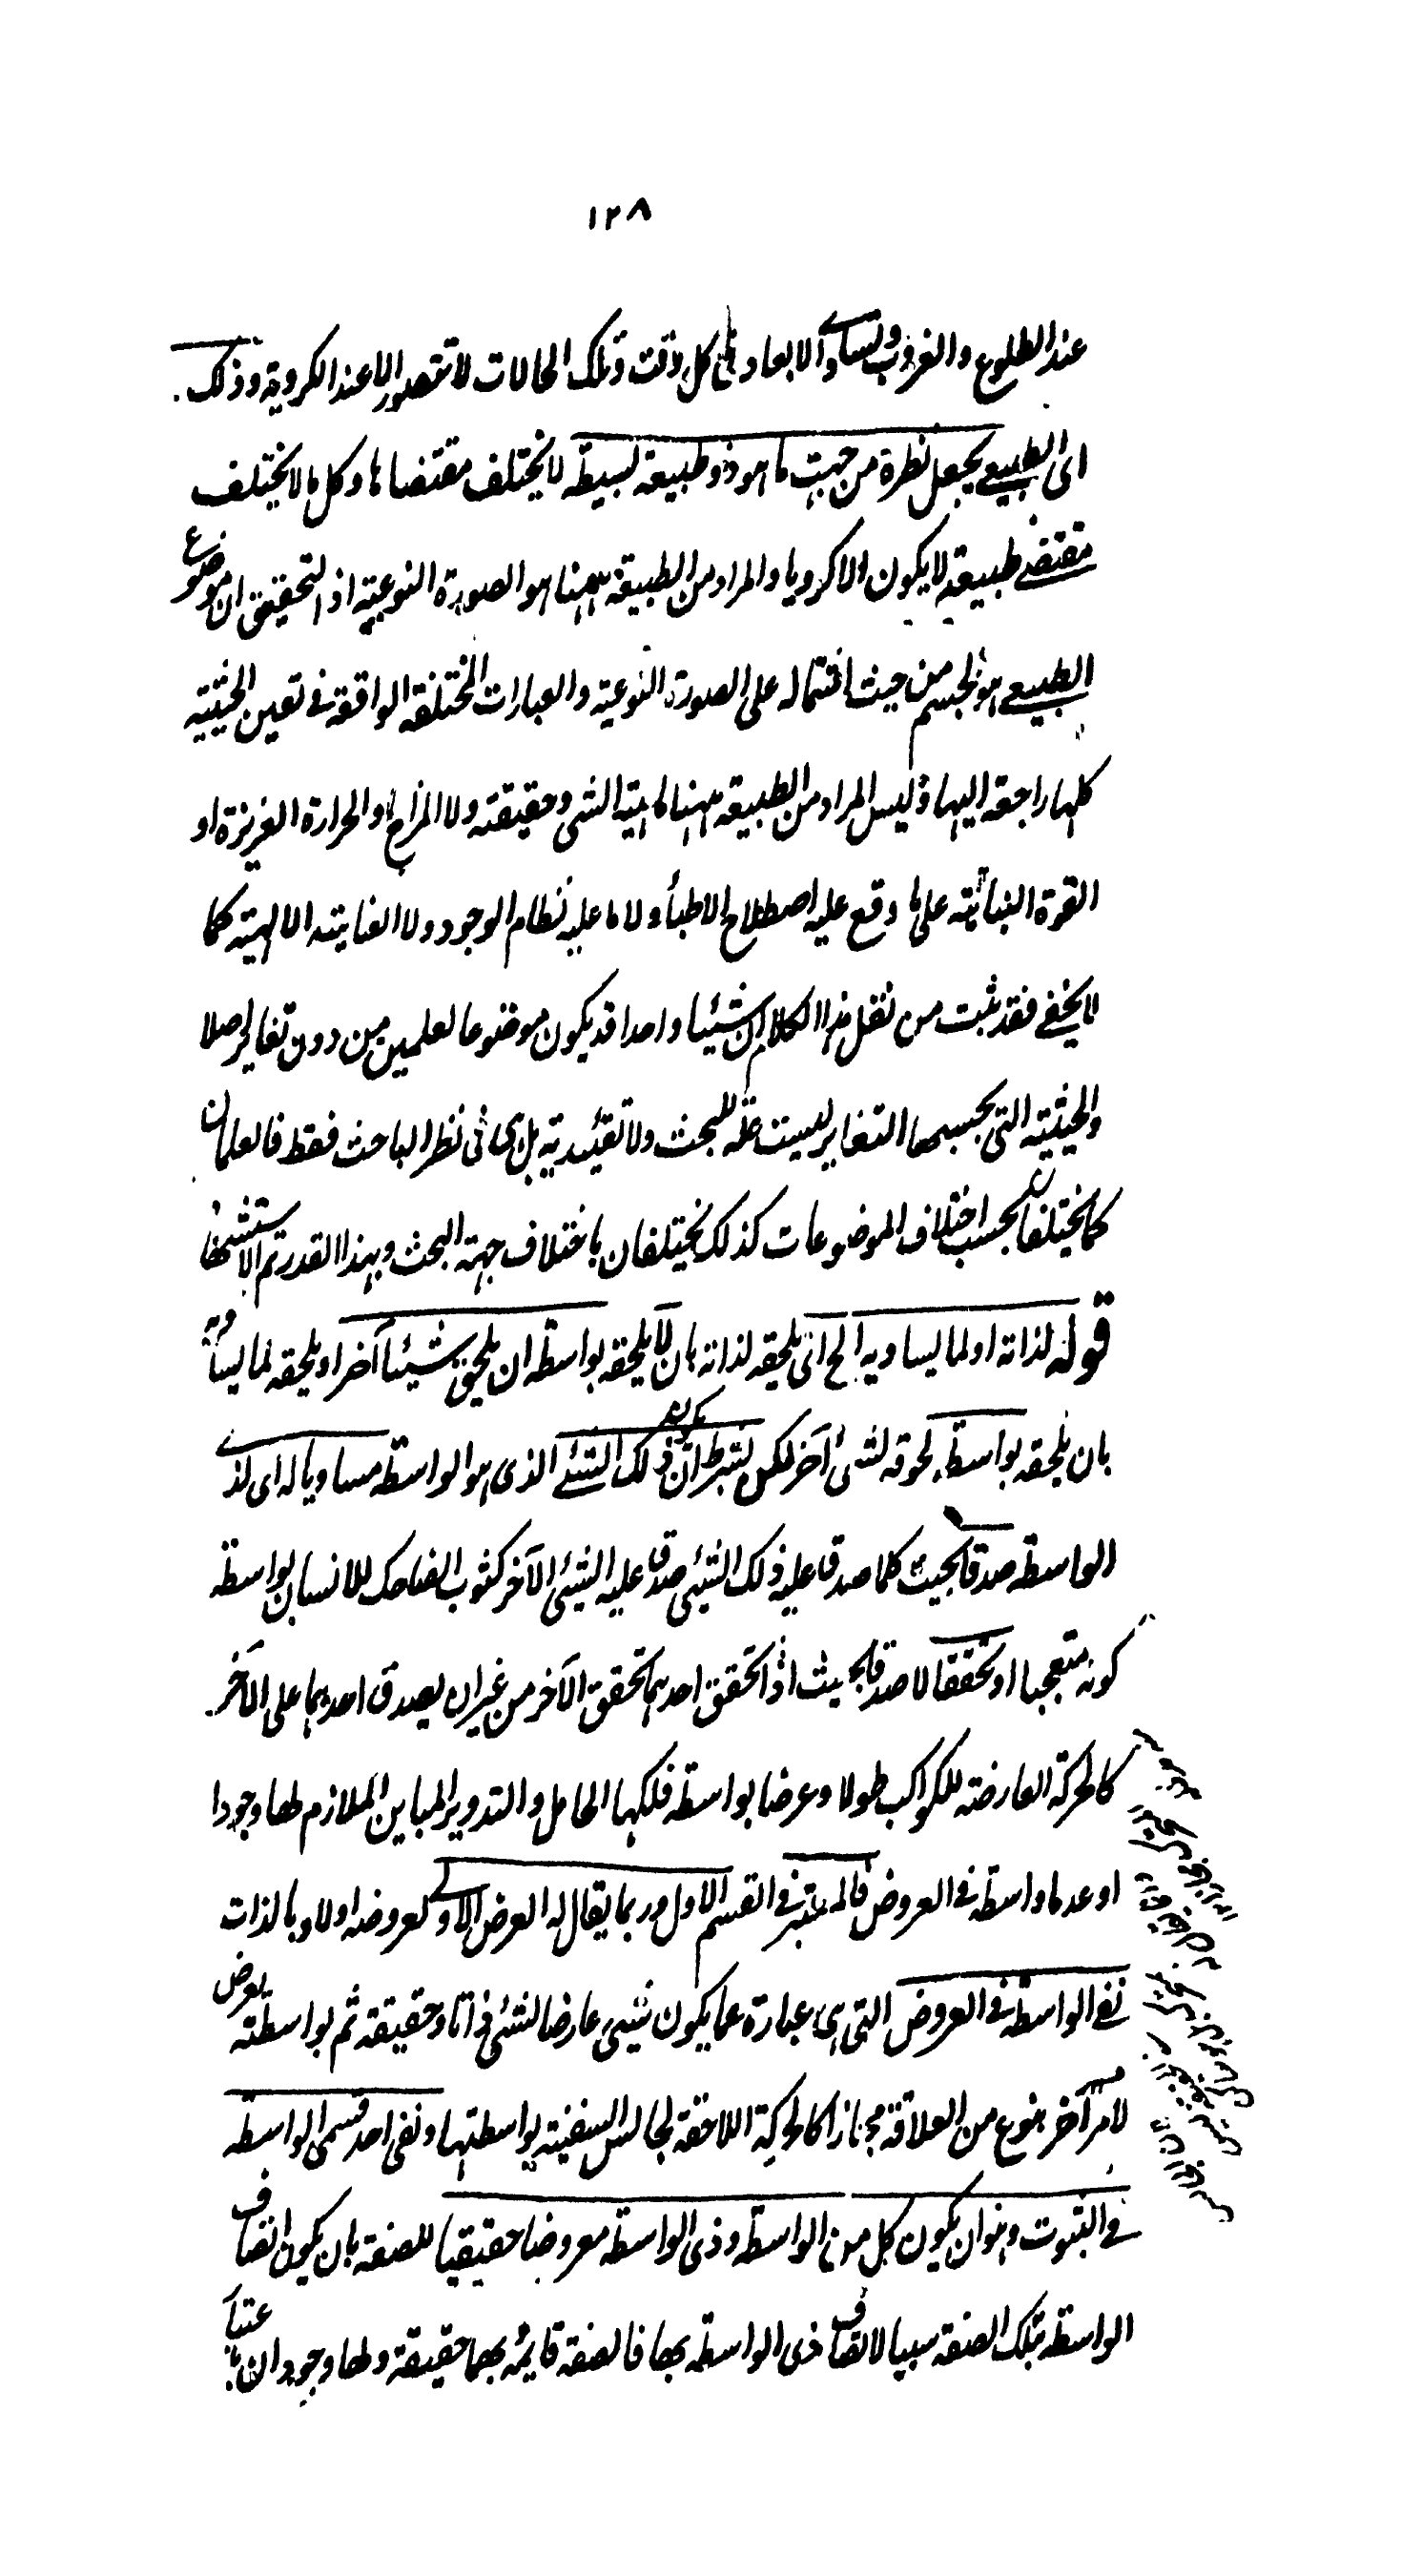 ١٢٨
عند الطلوع والغروب وتساوى الابعاد فى كل وقت وتلك الحالات لا تتصور الا عند الكروية وذلك
اى الطبيعى يجعل نظره من جهة ما هو ذو طبيعة بسيطة لا يختلف مقتضاها وكل ما لا يختلف
مقتضى طبيعة لا يكون الا كرويا والمراد من الطبيعة ههنا هو الصورة النوعية اذ التحقيق ان موضوع
الطبيعى هو الجسم من حيث اشتماله على الصورة النوعية والعبارات المختلفة الواقعة فى تعين الحيثية
كلها راجعة اليها وليس المراد من الطبيعة ههنا ماهية الشى وحقيقته ولا المزاج او الحرارة الغريزة او
القوة النباتية على ما وقع عليه اصطلاح الاطباء ولا ما عليه نظام الوجود ولا العناية الالهية كما
لا يخفى فقد ثبت من نقل هذا الكلام ان شيئا واحدا قد يكون موضوعا لعلمين من دون تغاير اصلا
والحيثية التى بحسبها التغاير ليست علة للبحث ولا تقييدية بل هى فى نظر الباحث فقط فالعلمان
كما يختلفان بحسب اختلاف الموضوعات كذلك يختلفان باختلاف جهة البحث وبهذا القدر تم الاستشهاد
قوله لذاته او لما يساويه الخ اى يلحقه لذاته بان لا يلحقه بواسطة ان يلحق شيئا آخر او يلحقه لما يساويه
بان يلحقه بواسطة لحوقه لشئ آخر لكن بشرط ان يكون ذلك الشئ الذى هو الواسطة مساويا له اى لذى
الواسطة صدقا بحيث كلما صدق عليه ذلك الشئ صدق عليه الشئ الآخر كثبوت الضاحك للانسان بواسطة
كونه متعجبا او تحققا لا صدقا بحيث اذا تحقق احدهما تحقق الآخر من غير ان يصدق احدهما على الآخر
كالحركة العارضة للكواكب طولا وعرضا بواسطة فلكها الحامل والتدوير المباين الملازم لها وجودا
او عدما واسطة فى العروض فالمعتبر فى القسم الاول وربما يقال له العرض الاولى لعروضه اولا وبالذات
نفى الواسطة فى العروض التى هى عبارة عما يكون شيئ عارضا لشئ ذاتا وحقيقة ثم بواسطته يعرض
لامر آخر بنوع من العلاقة مجازا كالحركة اللاحقة لجالس السفينة بواسطتها ونفى احد قسمى الواسطة
فى الثبوت وهو ان يكون كل من الواسطة وذى الواسطة معروضا حقيقيا للصفة بان يكون اتصاف
الواسطة بتلك الصفة سببا لاتصاف ذى الواسطة بها فالصفة قايمة بهما حقيقة ولها وجودان باعتبار